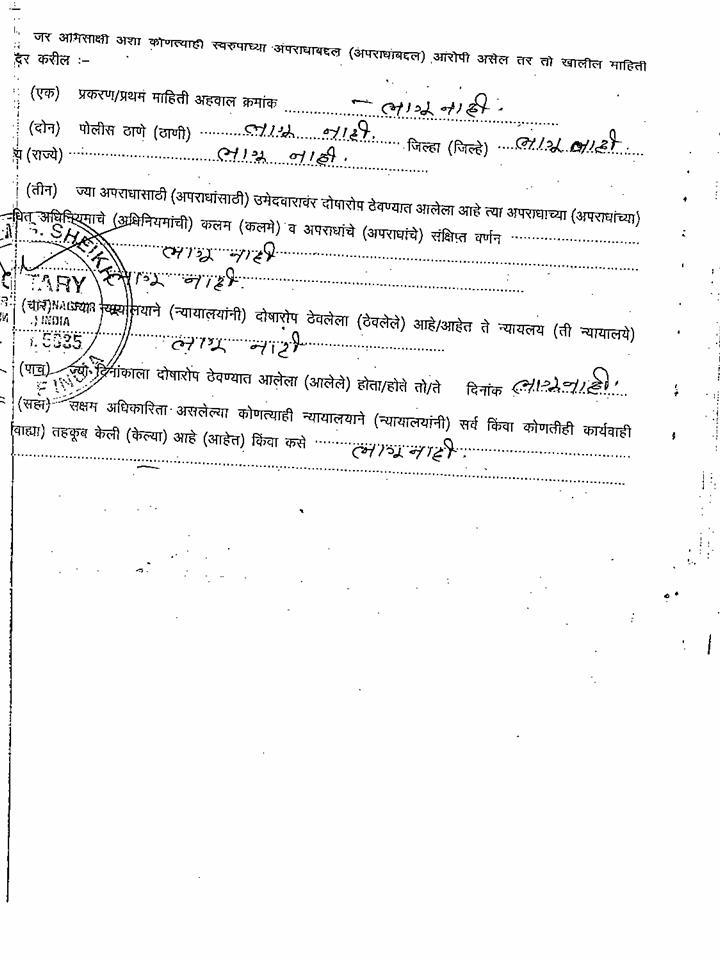 जर अभिसाक्षी अशा कोणत्याही स्वरुपाच्या अपराधाबद्दल (अपराधांबद्दल) आरोपी असेल तर तो खालील माहिती
दर करील :-
(एक) प्रकरण/प्रथम माहिती अहवाल क्रमांक — लागू नाही.
(दोन) पोलीस ठाणे (ठाणी) लागू नाही. जिल्हा (जिल्हे) लागू नाही.
य (राज्ये) लागू नाही.
(तीन) ज्या अपराधासाठी (अपराधांसाठी) उमेदवारावंर दोषारोप ठेवण्यात आलेला आहे त्या अपराधाच्या (अपराधांच्या)
धित अधिनियमाचे (अधिनियमांची) कलम (कलमे) व अपराधांचे (अपराधांचे) संक्षिप्त वर्णन
SHEIKH
लागू नाही
TARY लागू नाही.
(चार) ज्या न्यायालयाने (न्यायालयांनी) दोषारोप ठेवलेला (ठेवलेले) आहे/आहेत ते न्यायलय (ती न्यायालये)
INDIA
5635 लागू नाही
(पाच) ज्या दिनांकाला दोषारोप ठेवण्यात आलेला (आलेले) होता/होते तो/ते दिनांक लागू नाही.
INDIA
(सहा) सक्षम अधिकारिता असलेल्या कोणत्याही न्यायालयाने (न्यायालयांनी) सर्व किंवा कोणतीही कार्यवाही
वाह्या) तहकूब केली (केल्या) आहे (आहेत) किंवा कसे लागू नाही.